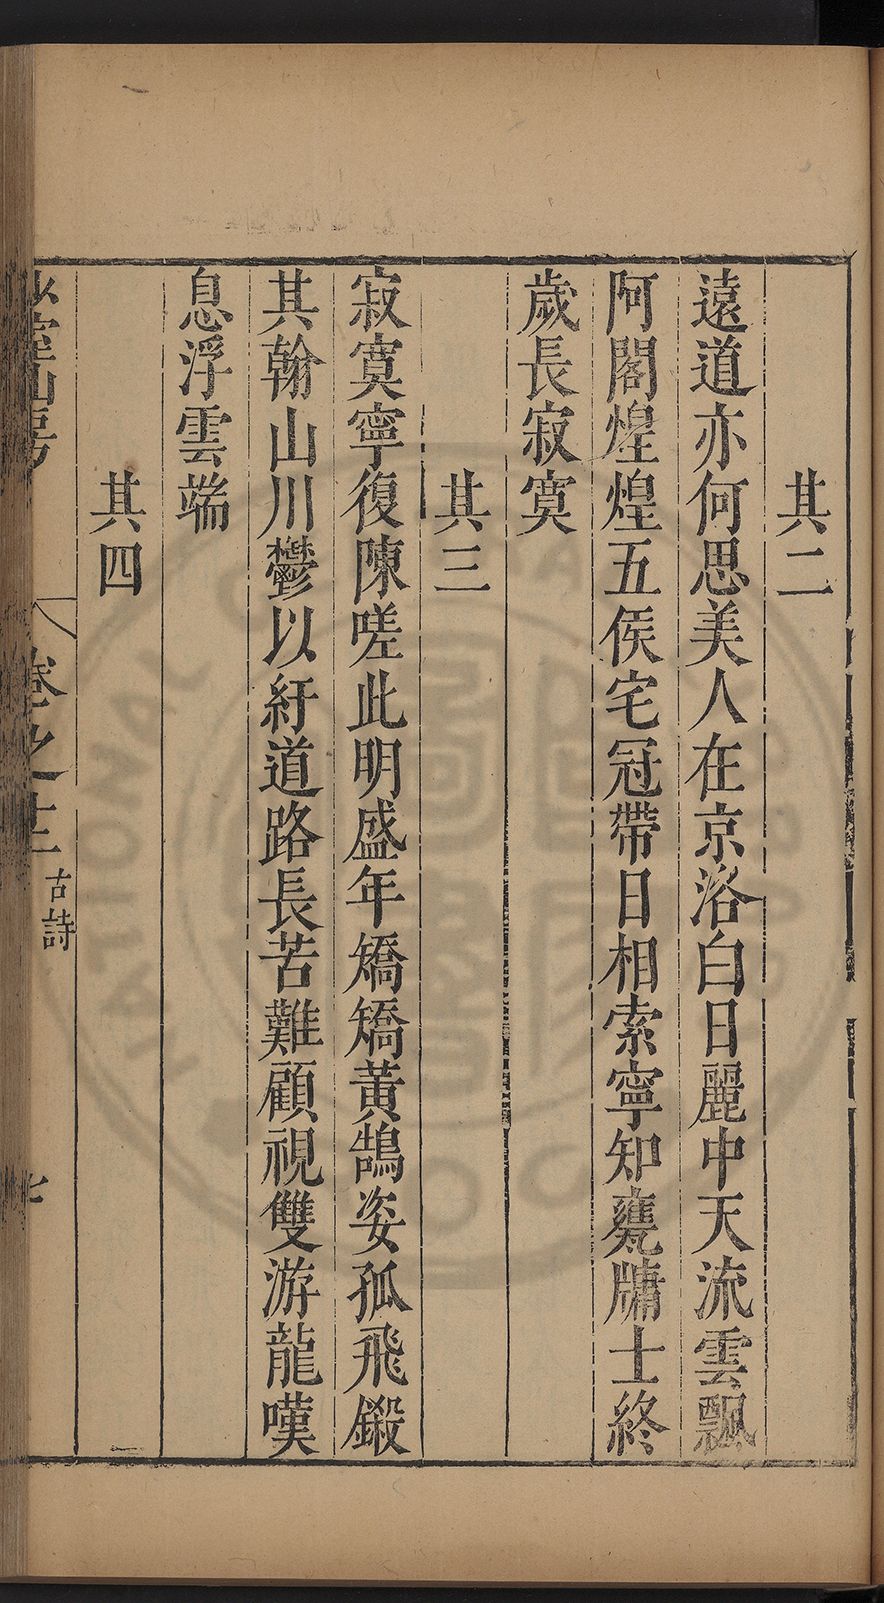 其二
遠道亦何思美人在京洛白日麗中天流雲飄
阿閣煌煌五侯宅冠帶日相索寧知甕牖士終
歲長寂寞
其三
寂寞寧復陳嗟此明盛年矯矯黃鵠姿孤飛鎩
其翰山川鬱以紆道路長苦難顧視雙游龍嘆
息浮雲端
其四
室山房
卷之
古詩